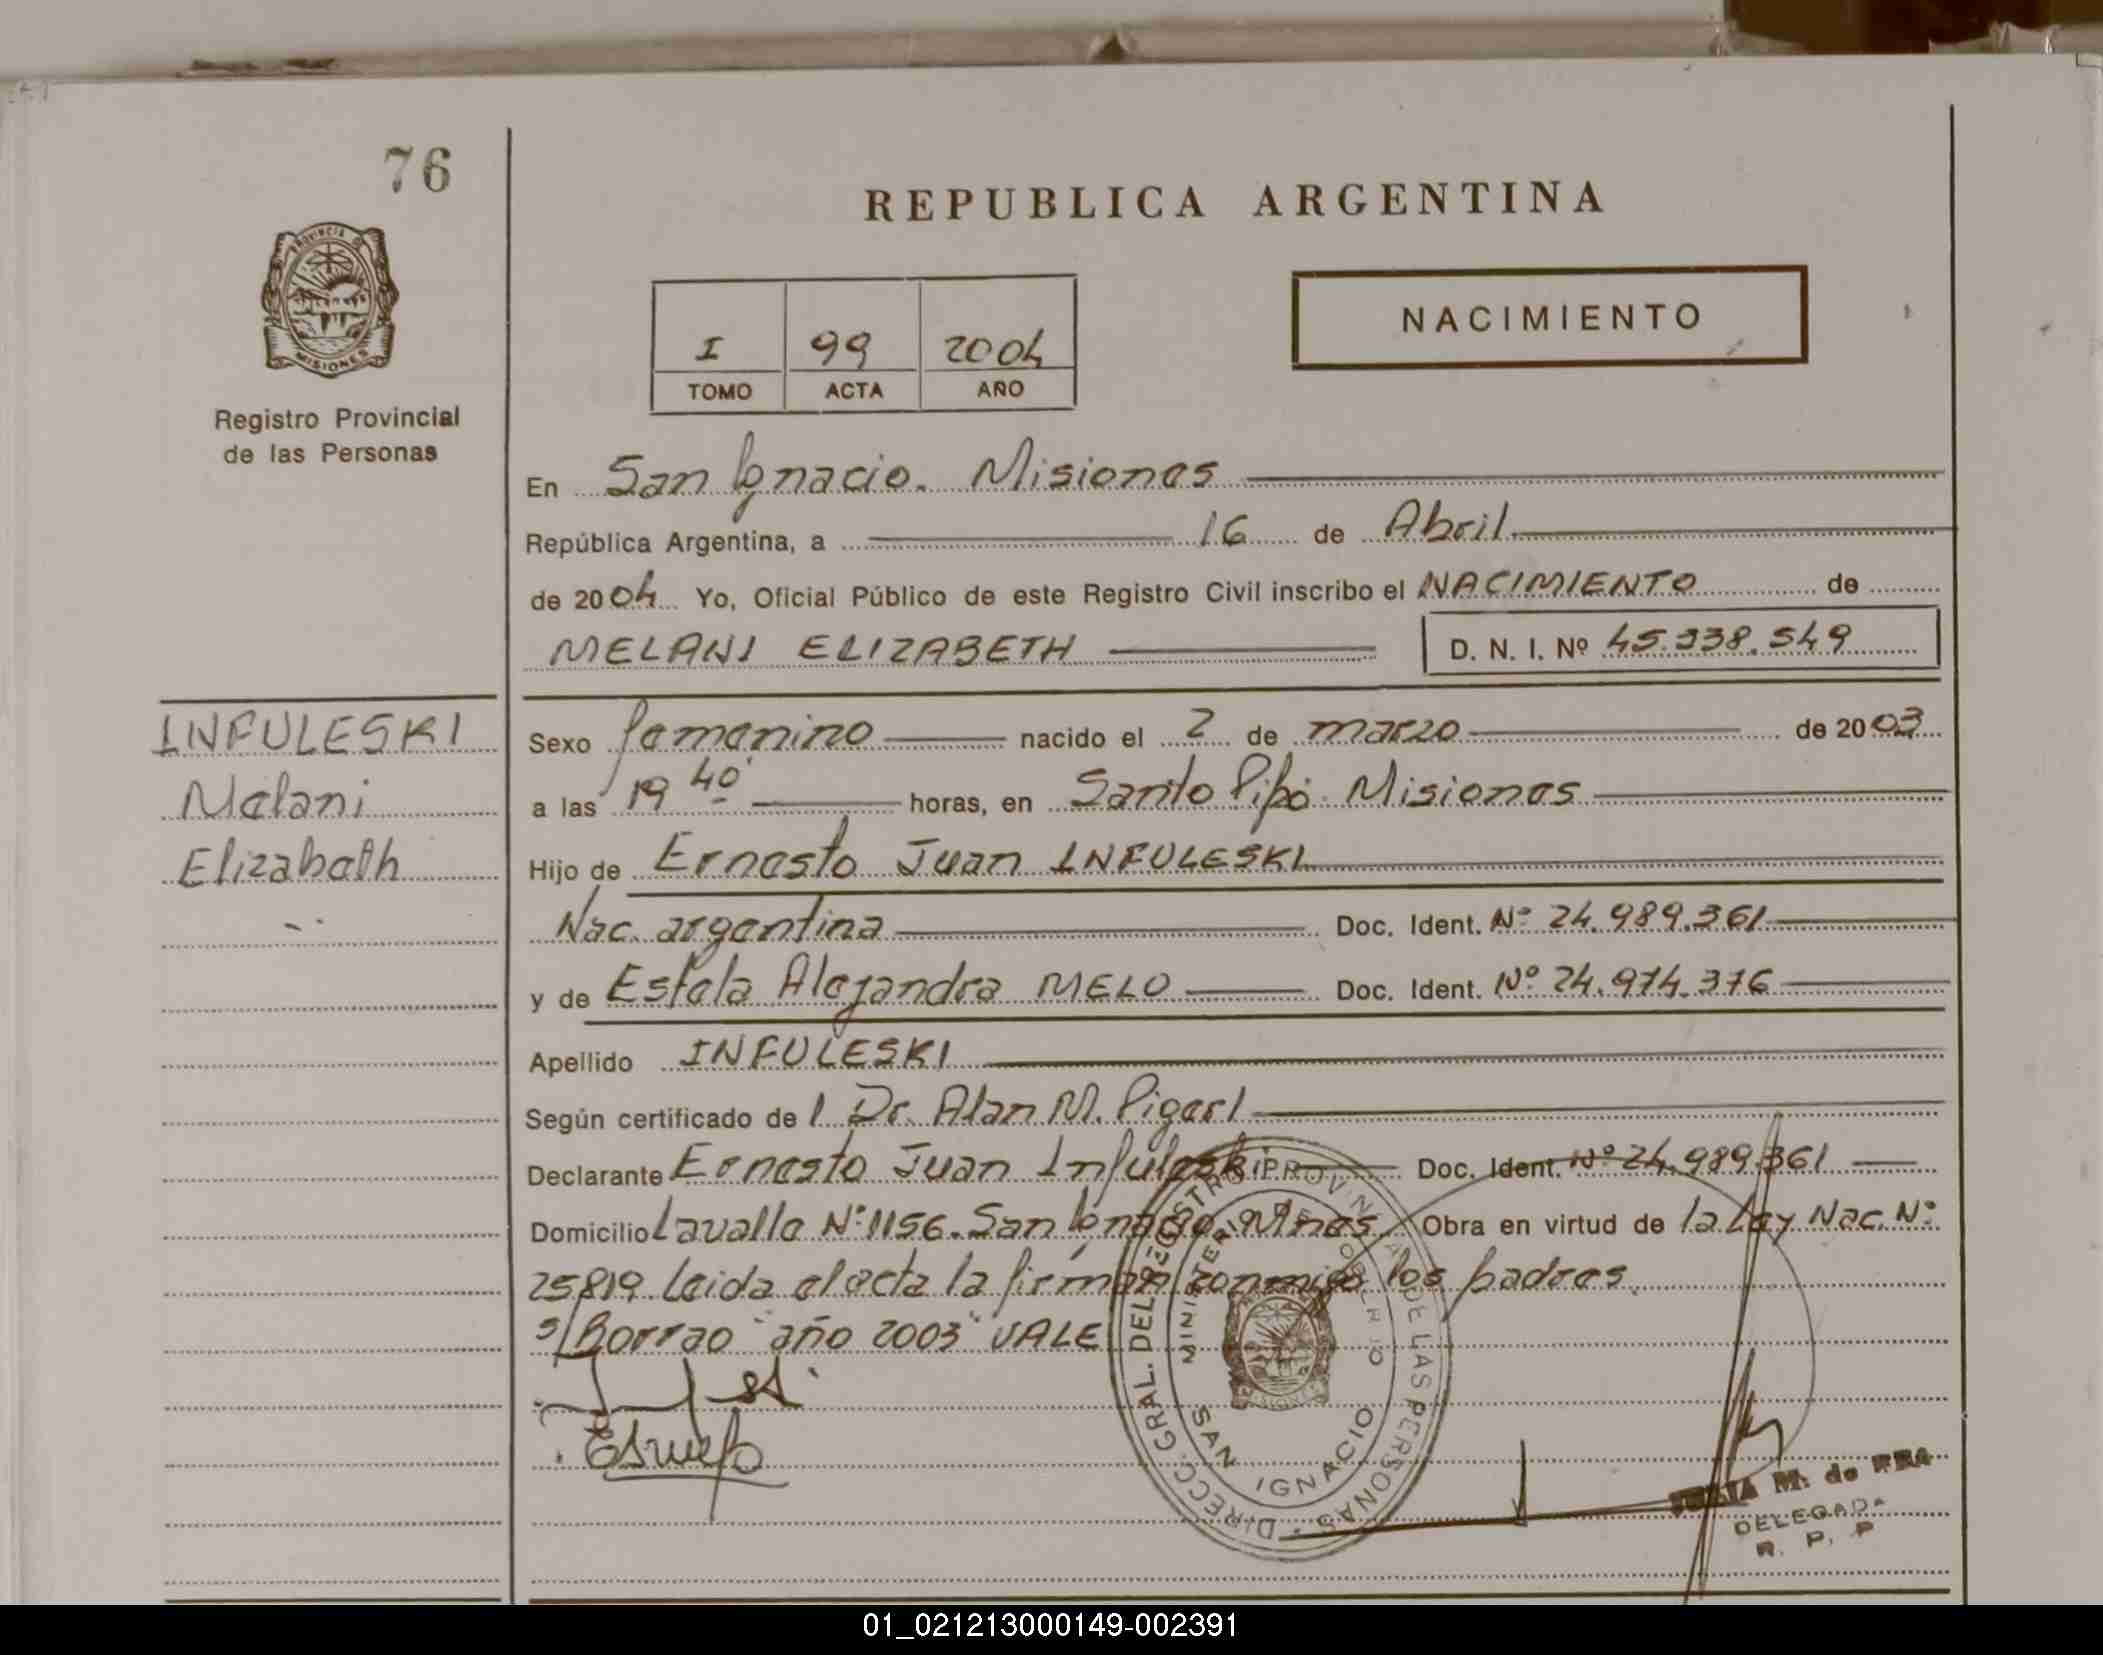 76
REPUBLICA ARGENTINA
PROVINCIA DE
MISIONES
Registro Provincial
de las Personas
I 99 2004
TOMO ACTA AÑO
NACIMIENTO
En San Ignacio. Misiones
República Argentina, a 16 de Abril
de 2004 Yo, Oficial Público de este Registro Civil inscribo el NACIMIENTO de
MELANI ELIZABETH D. N. I. Nº 45.338.549
INFULESKI
Melani
Elizabeth
Sexo femenino nacido el 2 de marzo de 2003
a las 19 40 horas, en Santo Pipó. Misiones
Hijo de Ernesto Juan INFULESKI
Nac. argentina Doc. Ident. Nº 24.989.361
y de Estela Alejandra MELO Doc. Ident. Nº 24.974.376
Apellido INFULESKI
Según certificado de l Dr. Alan M. Pigerl
Declarante Ernesto Juan Infuleski Doc. Ident. Nº 24.989.361
Domicilio Lavalle Nº 1156. San Ignacio. Mnes. Obra en virtud de la Ley Nac. Nº
25819 Leida el acta la firman conmigo los padres.
s/Borrao "año 2003" VALE
DIRECC. GRAL. DEL REGISTRO PROVINCIAL DE LAS PERSONAS
MINISTERIO DE GOBIERNO
SAN IGNACIO
M. de REA
DELEGADA
R. P. P
01_021213000149-002391